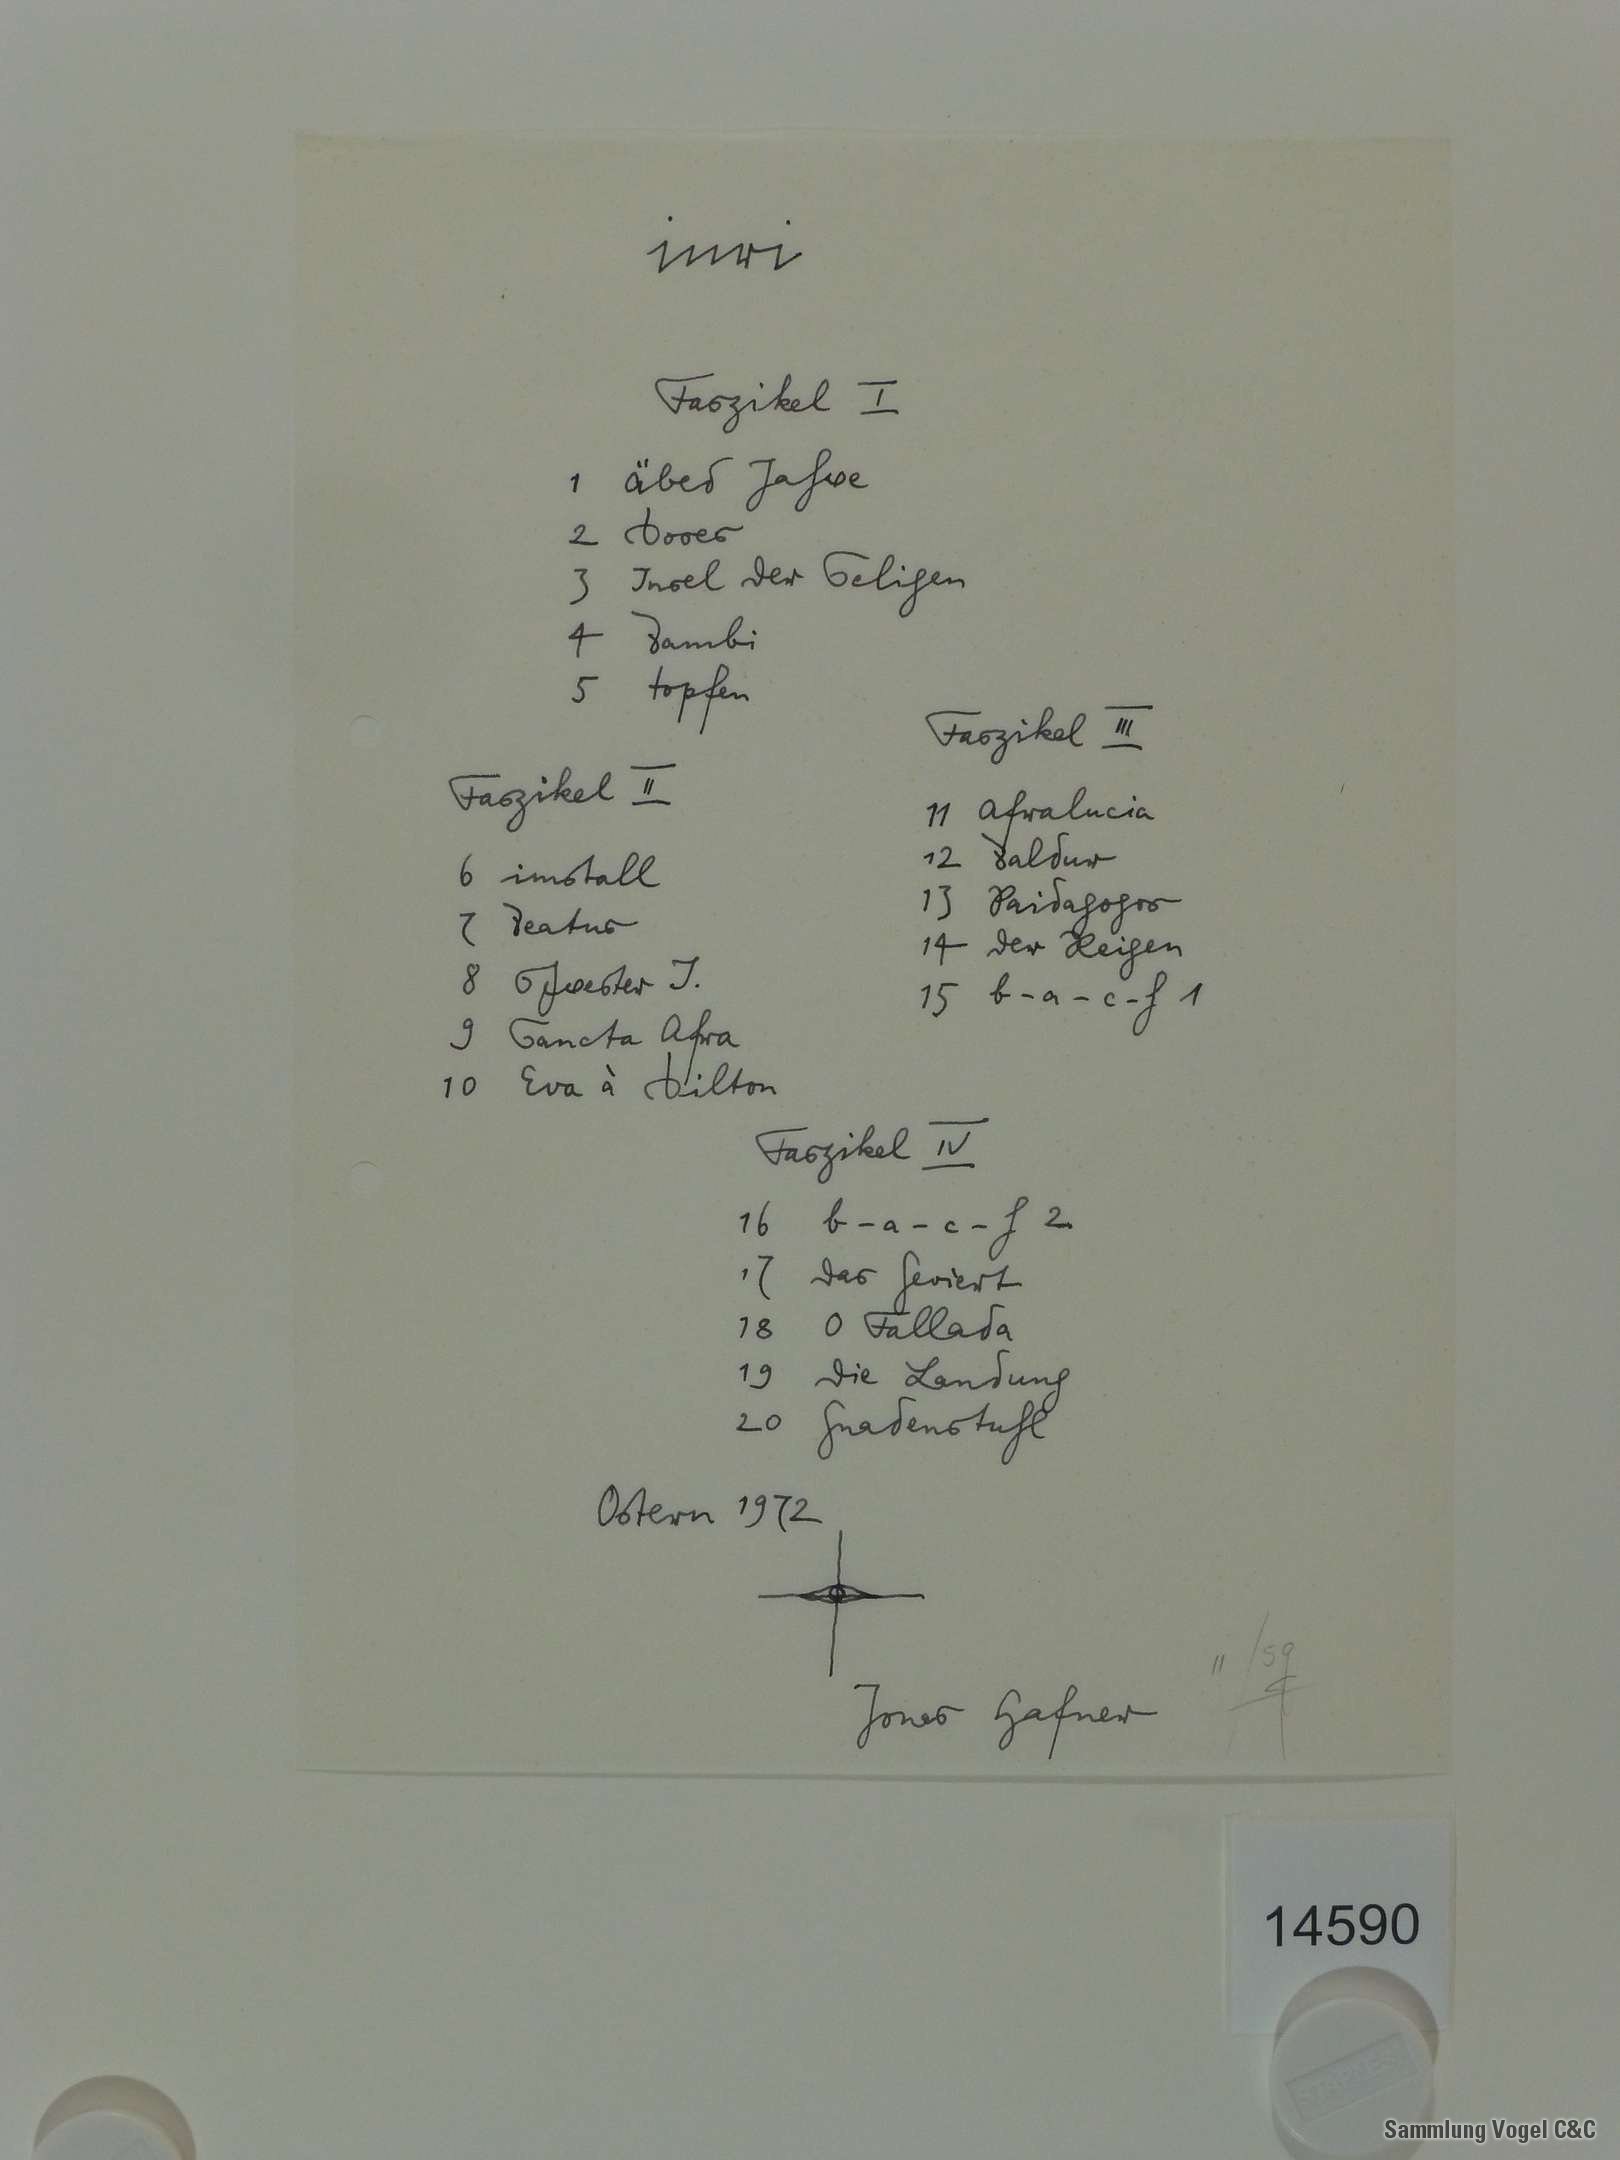 inri
Faszikel I
1 äbed Jahwe
2 Moses
3 Insel der Seligen
4 Bambi
5 topfen
Faszikel II
6 imstall
7 Beatus
8 Schwester J.
9 Sancta Afra
10 Eva à Milton
Faszikel III
11 Afralucia
12 Baldur
13 Paidagogos
14 der Reigen
15 b-a-c-h 1
Faszikel IV
16 b-a-c-h 2
17 das Geviert
18 O Fallada
19 die Landung
20 Gnadenstuhl
Ostern 1972
Jonas Hafner
11/59
14590
STAPLES
Sammlung Vogel C&C